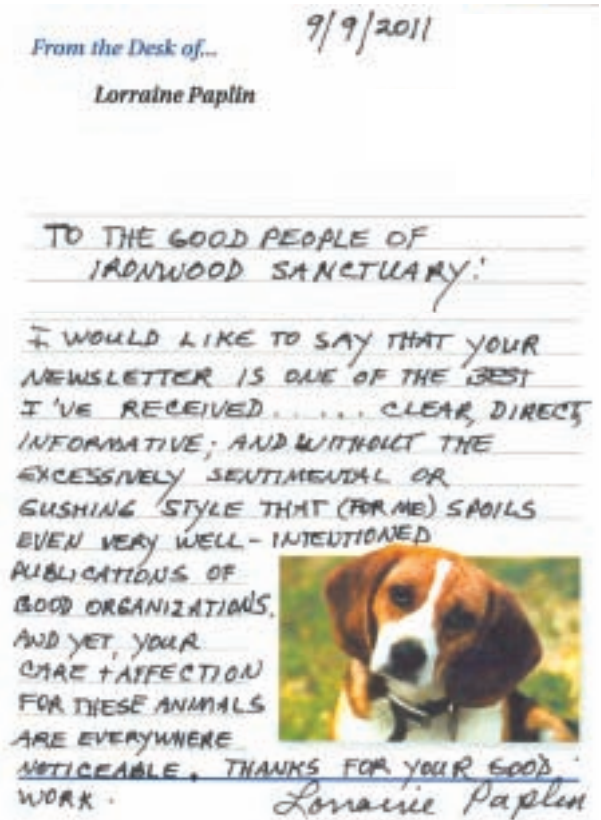 9/9/2011
From the Desk of...
Lorraine Paplin
TO THE GOOD PEOPLE OF
IRONWOOD SANCTUARY:
I WOULD LIKE TO SAY THAT YOUR
NEWSLETTER IS ONE OF THE BEST
I'VE RECEIVED..... CLEAR, DIRECT,
INFORMATIVE; AND WITHOUT THE
EXCESSIVELY SENTIMENTAL OR
GUSHING STYLE THAT (FOR ME) SPOILS
EVEN VERY WELL-INTENTIONED
PUBLICATIONS OF
GOOD ORGANIZATIONS.
AND YET, YOUR
CARE + AFFECTION
FOR THESE ANIMALS
ARE EVERYWHERE
NOTICEABLE. THANKS FOR YOUR GOOD
WORK. Lorraine Paplin